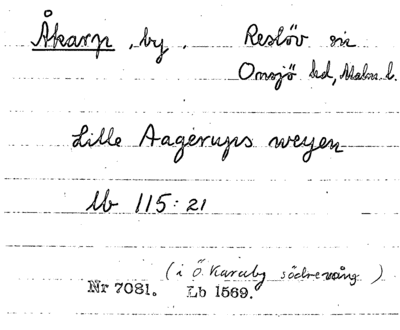 Åkarp, by. Reslöv sn
Onsjö hd, Malm l.
Lille Aagerups weyen
Lb 115:21
(i Ö. Karaby södrevång)
Nr 7081. Lb 1569.